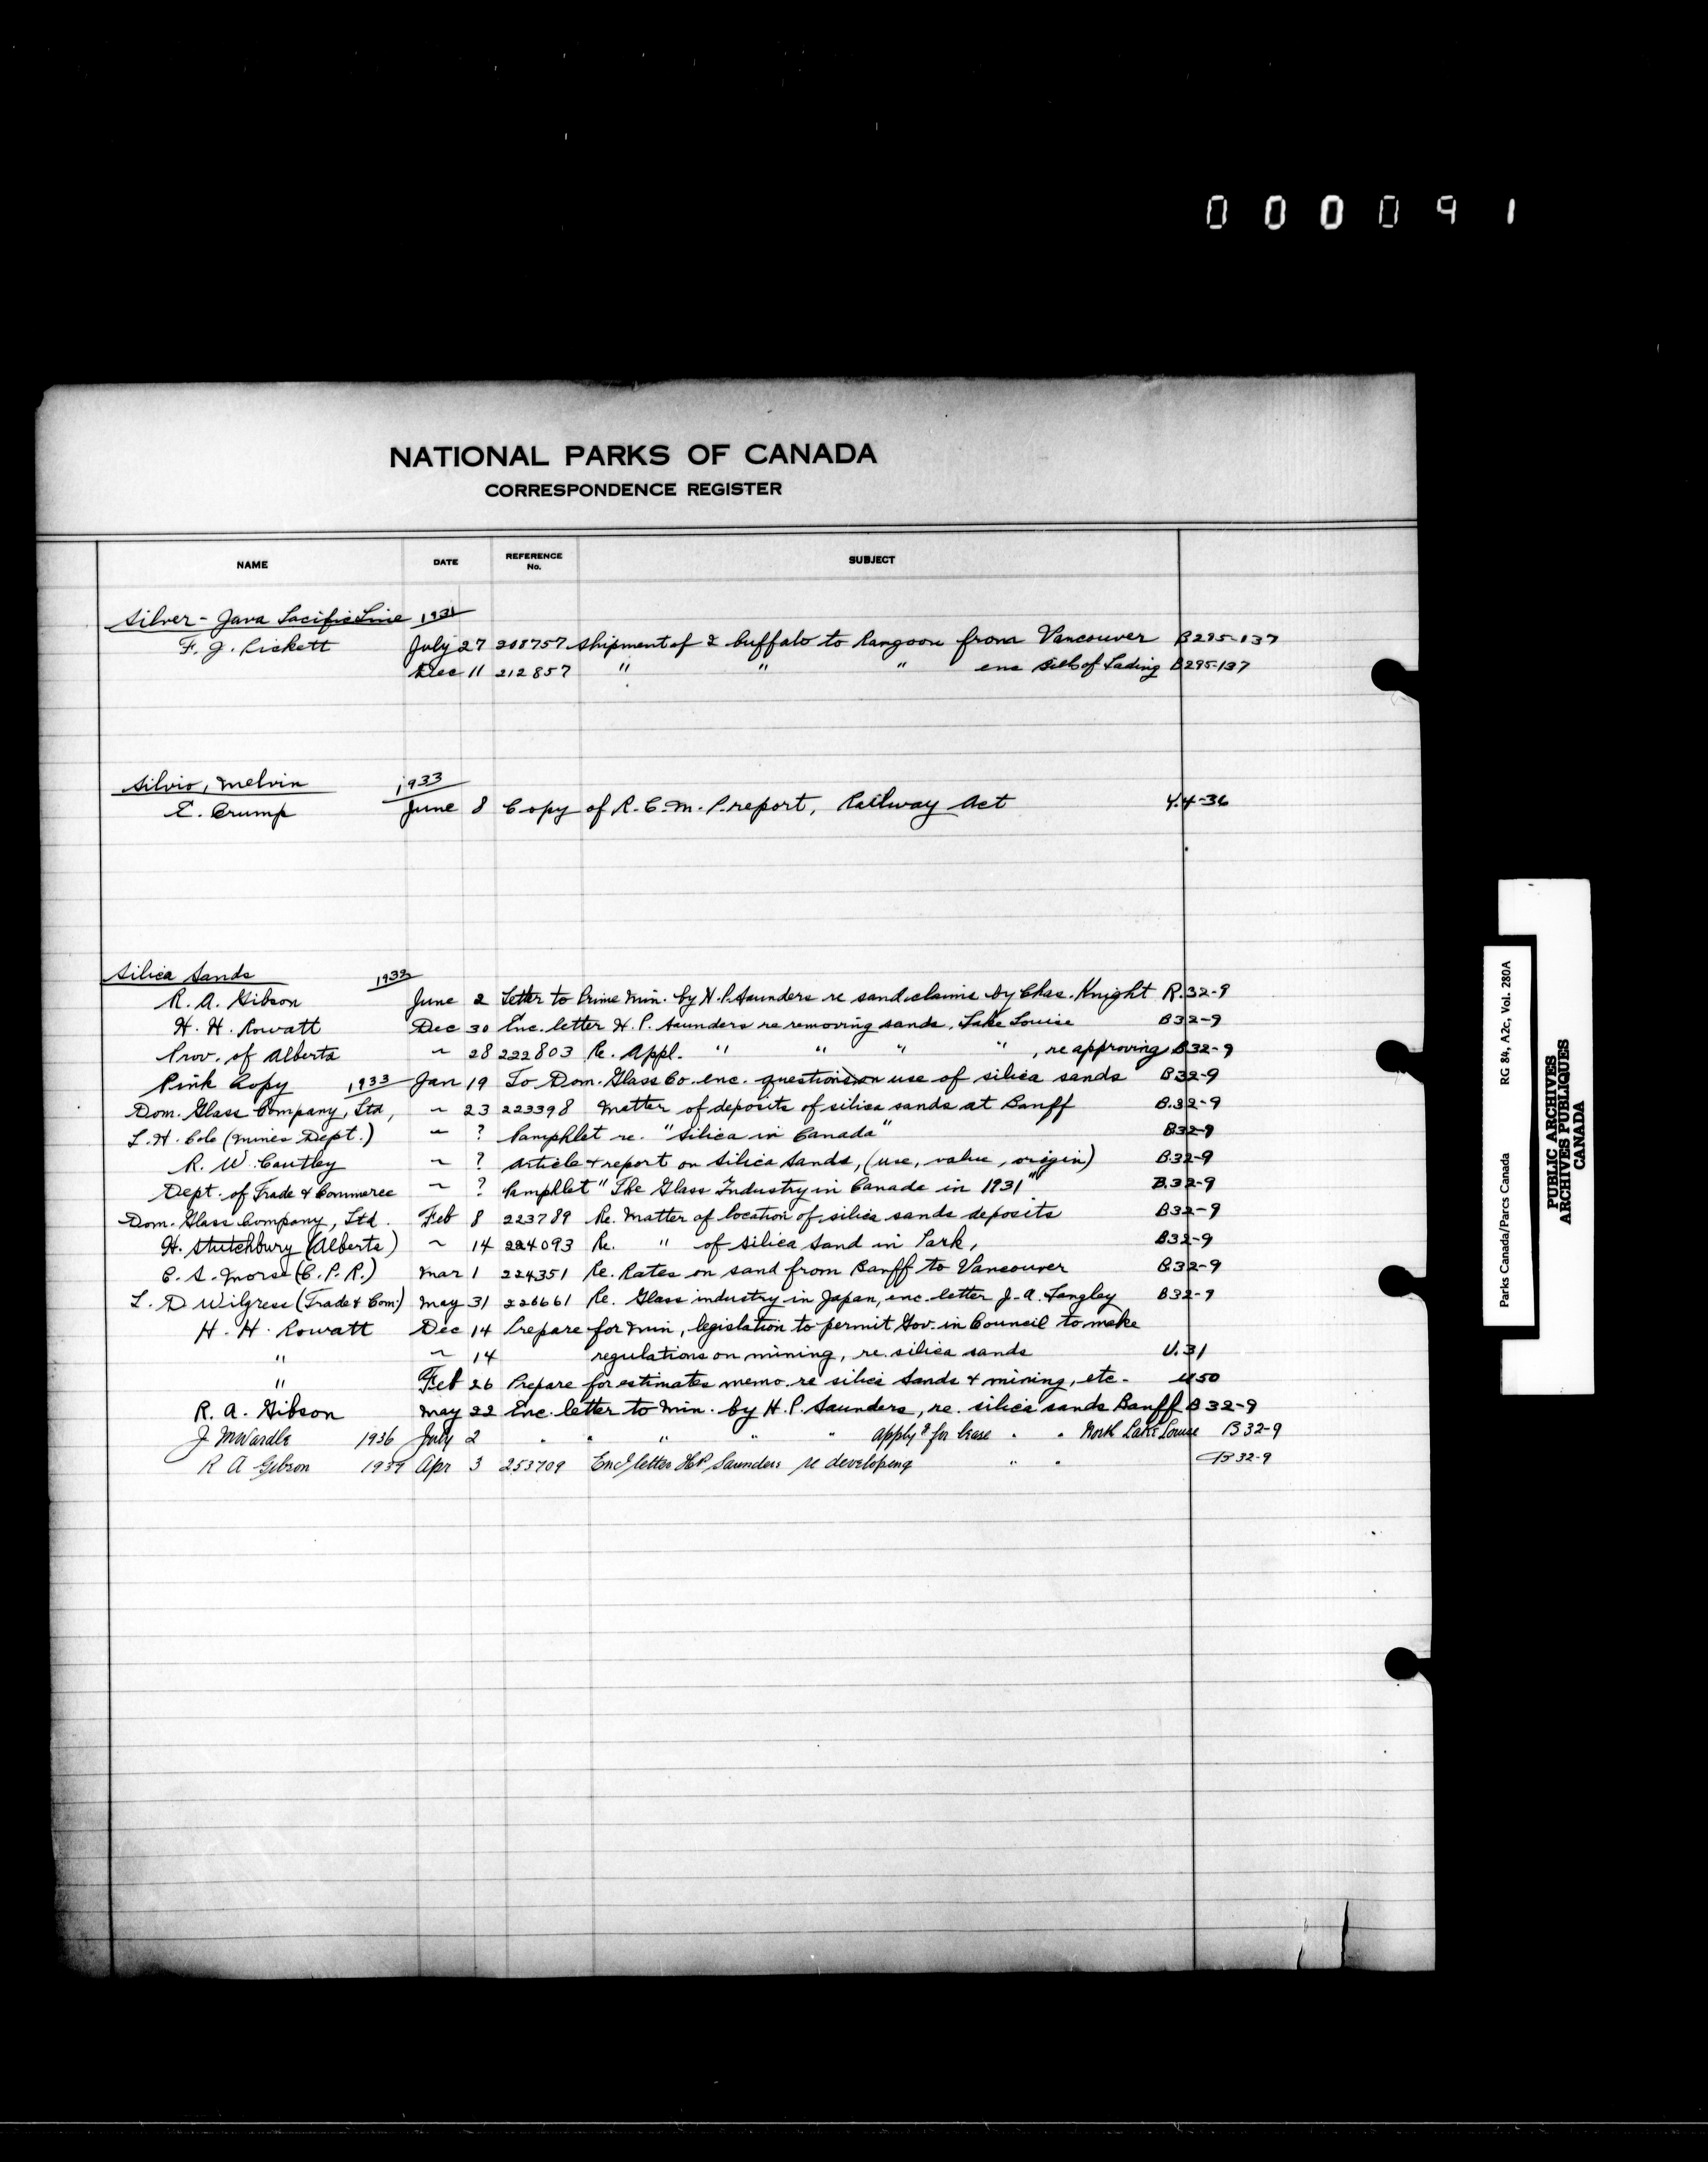 000091
NATIONAL PARKS OF CANADA
CORRESPONDENCE REGISTER
NAME DATE REFERENCE No. SUBJECT
Silver - Java Pacific Line 1931
F. J. Pickett July 27 208757 Shipment of 2 buffalo to Rangoon from Vancouver B295-137
Dec 11 212857 " " " enc Bill of Lading B295-137
Silvio, Melvin 1933
E. Crump June 8 Copy of R.C.M.P. report, Railway Act Y.4-36
Silica Sands 1932
R. A. Gibson June 2 Letter to Prime Min. by H.P. Saunders re sand claims by Chas. Knight R.32-9
H. H. Rowatt Dec 30 Enc. letter H.P. Saunders re removing sands, Lake Louise B32-9
Prov. of Alberta ~ 28 222803 Re. Appl. " " " " , re approving B32-9
Pink Copy 1933 Jan 19 To Dom. Glass Co. enc. questions on use of silica sands B32-9
Dom. Glass Company, Ltd, ~ 23 223398 Matter of deposits of silica sands at Banff B.32-9
L. H. Cole (Mines Dept.) ~ ? Pamphlet re. "Silica in Canada" B32-9
R. W. Cautley ~ ? Article & report on Silica Sands, (use, value, origin) B.32-9
Dept. of Trade & Commerce ~ ? Pamphlet "The Glass Industry in Canada in 1931" B.32-9
Dom. Glass Company, Ltd. Feb 8 223789 Re. Matter of location of silica sands deposits B32-9
H. Stutchbury (Alberta) ~ 14 224093 Re. " of silica sand in Park, B32-9
C. S. Morse (C.P.R.) Mar 1 224351 Re. Rates on sand from Banff to Vancouver B.32-9
L. D Wilgress (Trade & Com) May 31 226661 Re. Glass industry in Japan, enc. letter J. A. Langley B32-9
H. H. Rowatt Dec 14 Prepare for Min, legislation to permit Gov. in Council to make
" ~ 14 regulations on mining, re. silica sands U.31
" Feb 26 Prepare for estimates memo. re silica sands & mining, etc. U50
R. A. Gibson May 22 Enc. letter to Min. by H.P. Saunders, re. silica sands Banff B 32-9
J M Wardle 1936 July 2 " " " " " apply'g for lease " " North Lake Louise B32-9
R A Gibson 1939 Apr 3 253709 Encl letter HP Saunders re developing " " B32-9
Parks Canada/Parcs Canada RG 84, A2c, Vol. 280A
PUBLIC ARCHIVES
ARCHIVES PUBLIQUES
CANADA